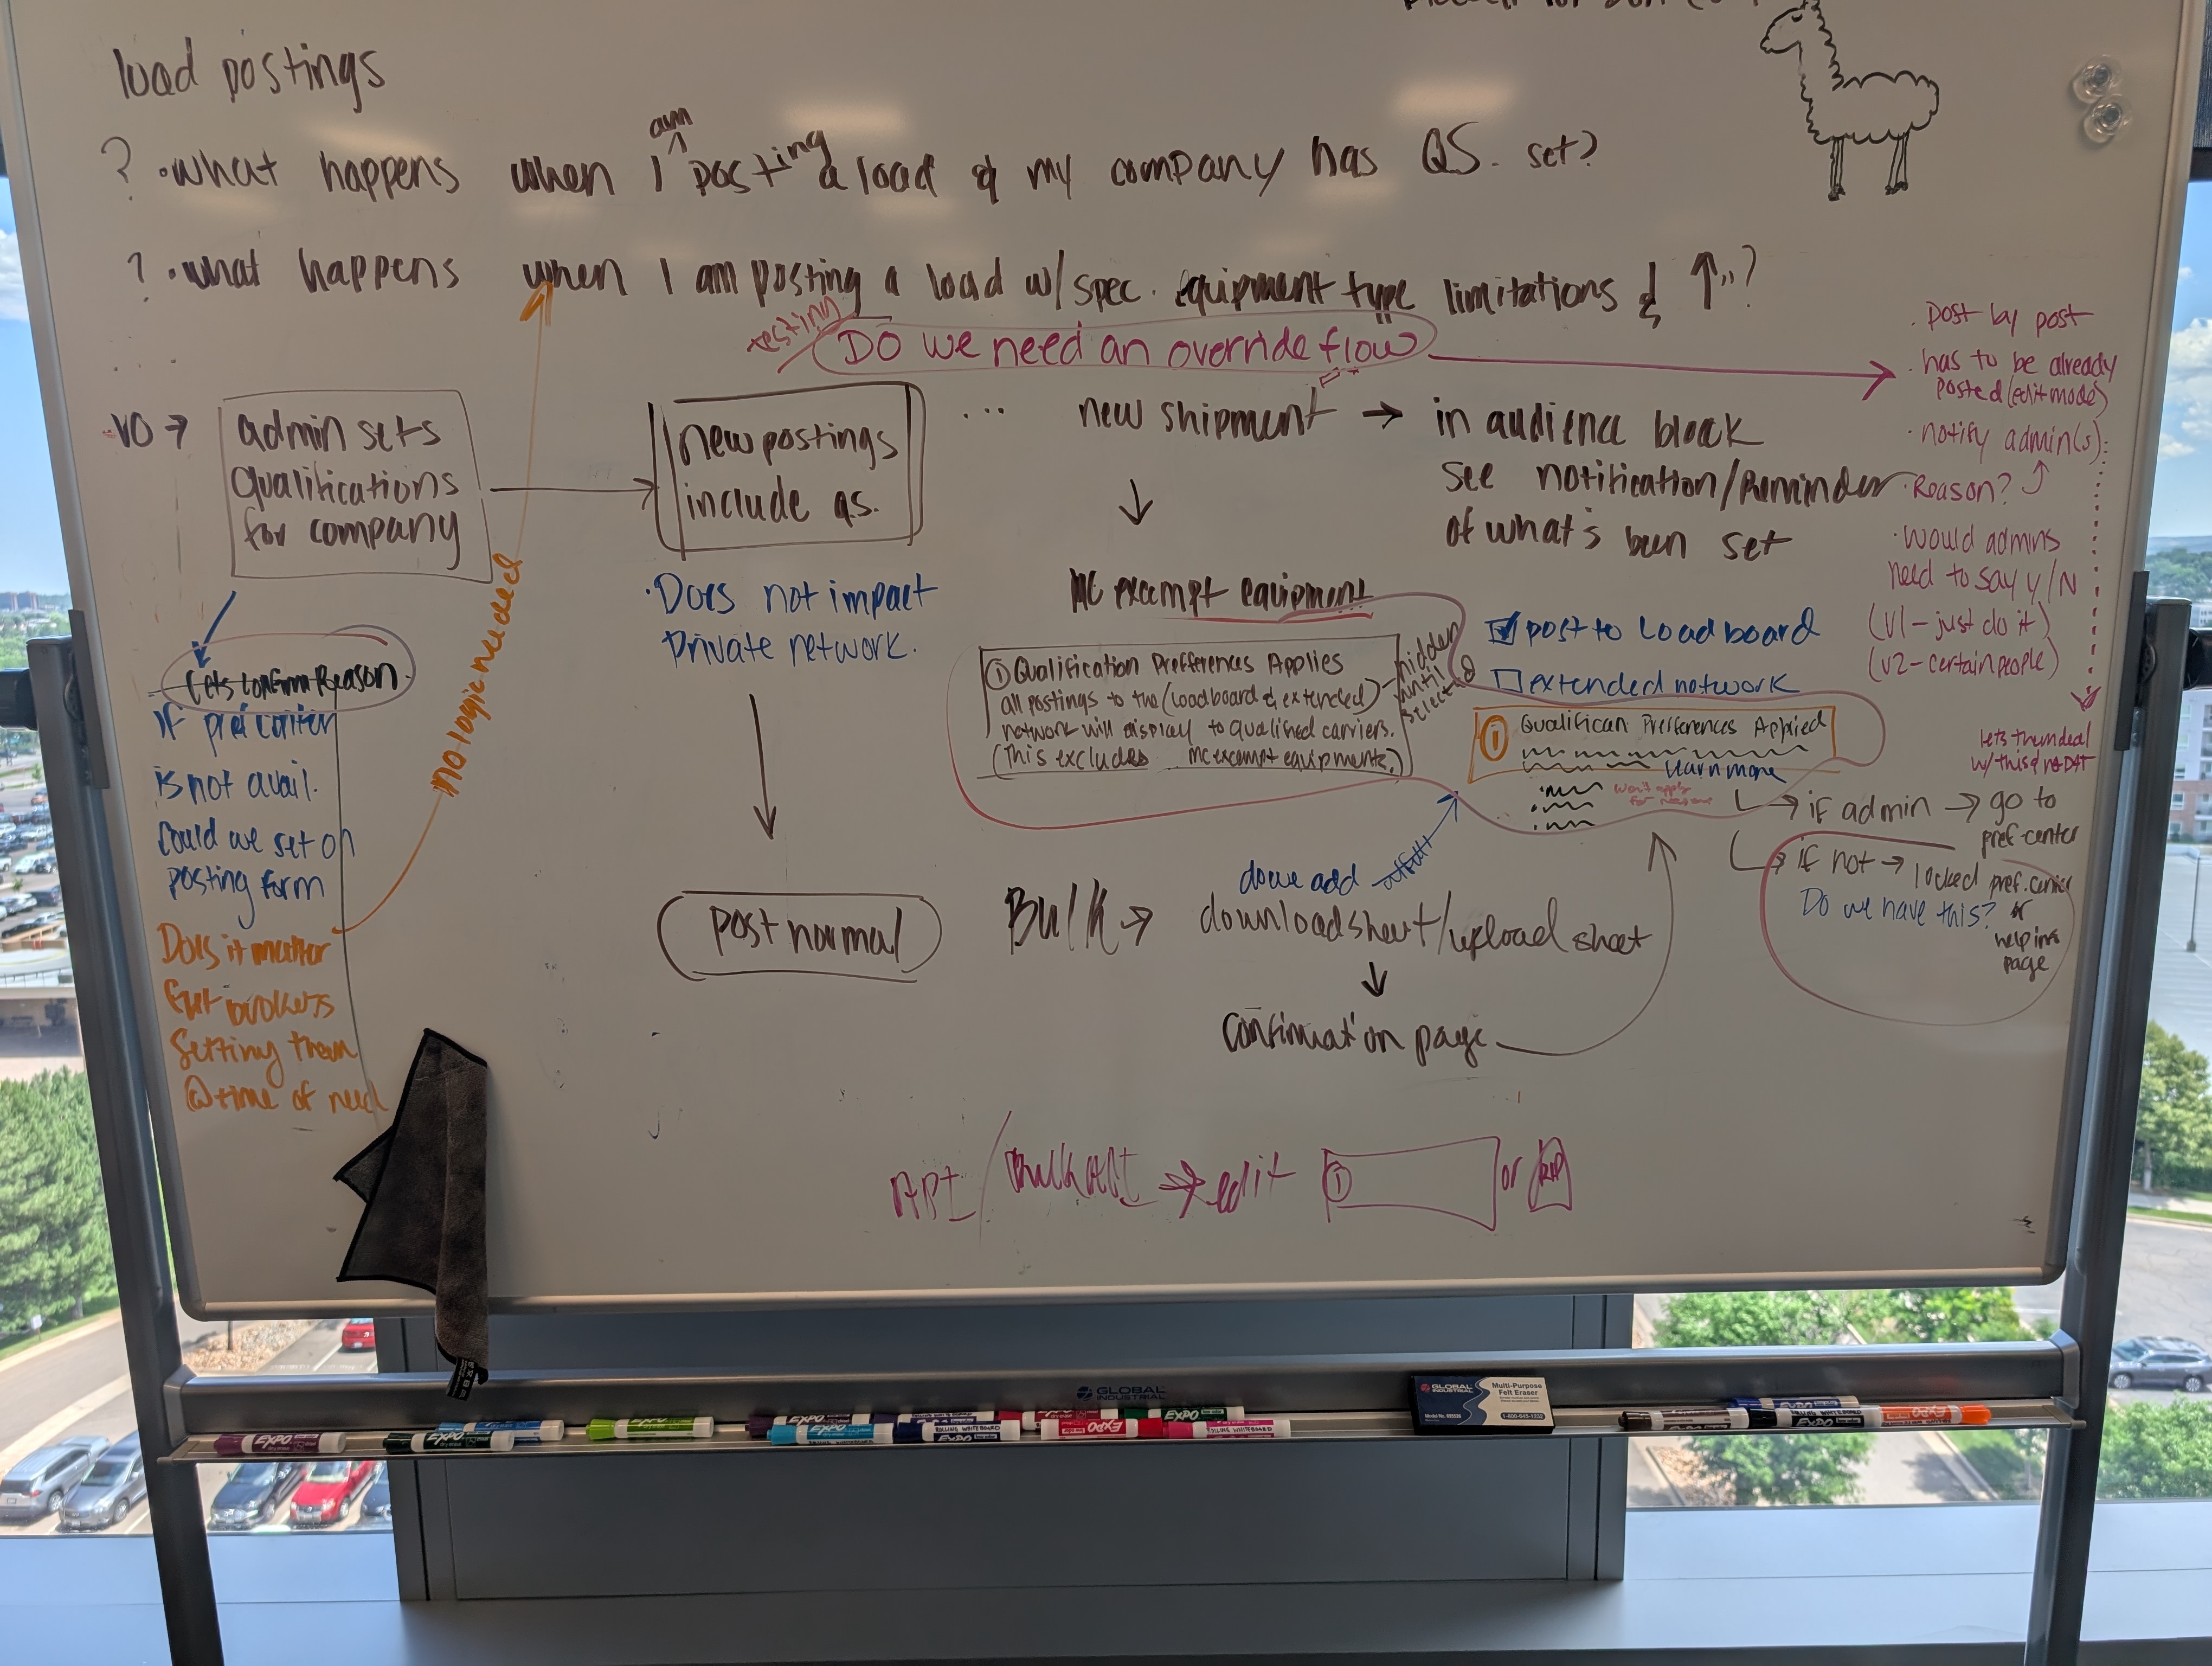 load postings
? • what happens when I am posting a load & my company has QS. set?
? • what happens when I am posting a load w/ spec. equipment type limitations & ↑"?
testing
Do we need an override flow
• post by post
• has to be already
posted (edit mode)
• notify admin(s).
• Reason?
• Would admins
need to say Y/N
(V1 - just do it)
(V2 - certain people)
lets them deal
w/ this & not DAT
V0 →
admin sets
qualifications
for company
new postings
include q.s.
...
new shipment → in audience block
see notification/Reminder
of what's been set
Lets confirm Reason
If pref center
is not avail.
Could we set on
posting form
Does it matter
brokers
Setting them
@ time of need
no logic needed
• Does not impact
Private network.
post normal
MC exempt equipment
① Qualification Prefferences Applies
all postings to the (loadboard & extended)
network will display to qualified carriers.
(This excludes MC exempt equipments.)
hidden
until
selected
☑ post to Load board
☐ extended network
① Qualifican Prefferences Applied
learn more
won't apply
for
→ if admin → go to
pref-center
→ if not → locked pref. center
or
help ins
page
Do we have this?
do we add
Bulk → download sheet/upload sheet
↓
Confirmation page
API / → edit ① or
GLOBAL
INDUSTRIAL
GLOBAL
INDUSTRIAL
Multi-Purpose
Felt Eraser
1-800-645-1232
EXPO
EXPO
EXPO
EXPO
EXPO
EXPO
EXPO
EXPO
EXPO